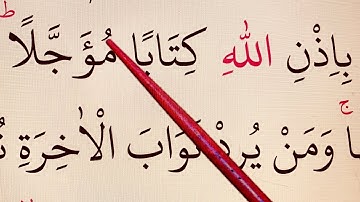 بِاِذْنِ اللّٰهِ كِتَابًا مُؤَجَّلًا ط
وَمَنْ يُرِدْ ثَوَابَ الْاٰخِرَةِ